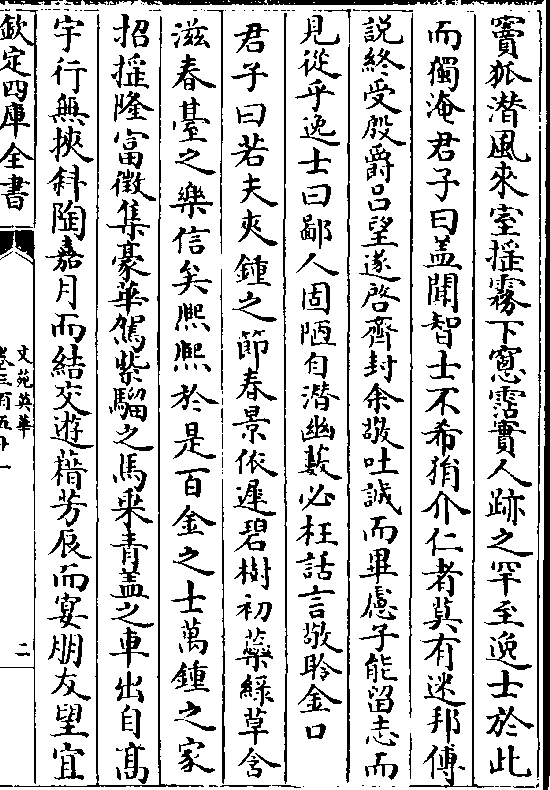 竇狐潜風來室揺霧下窻霑實人跡之罕至逸士於此
而獨淹君子曰盖聞智士不希狷介仁者莫有迷邦傅
説終受殷爵吕望遂啓齊封余敬吐誠而畢慮子能留志而
見從乎逸士曰鄙人固陋自潜幽藪必枉話言敬聆金口
君子曰若夫夾鍾之節春景依遲碧樹初蘂緑草含
滋春臺之樂信矣熙熙於是百金之士萬鍾之家
招揺隆富徵集豪華駕紫騮之馬乗青盖之車出自髙
宇行無挾斜陶嘉月而結交遊藉芳辰而宴朋友望宜
欽定四庫全書
文苑英華
卷三百五十一
二